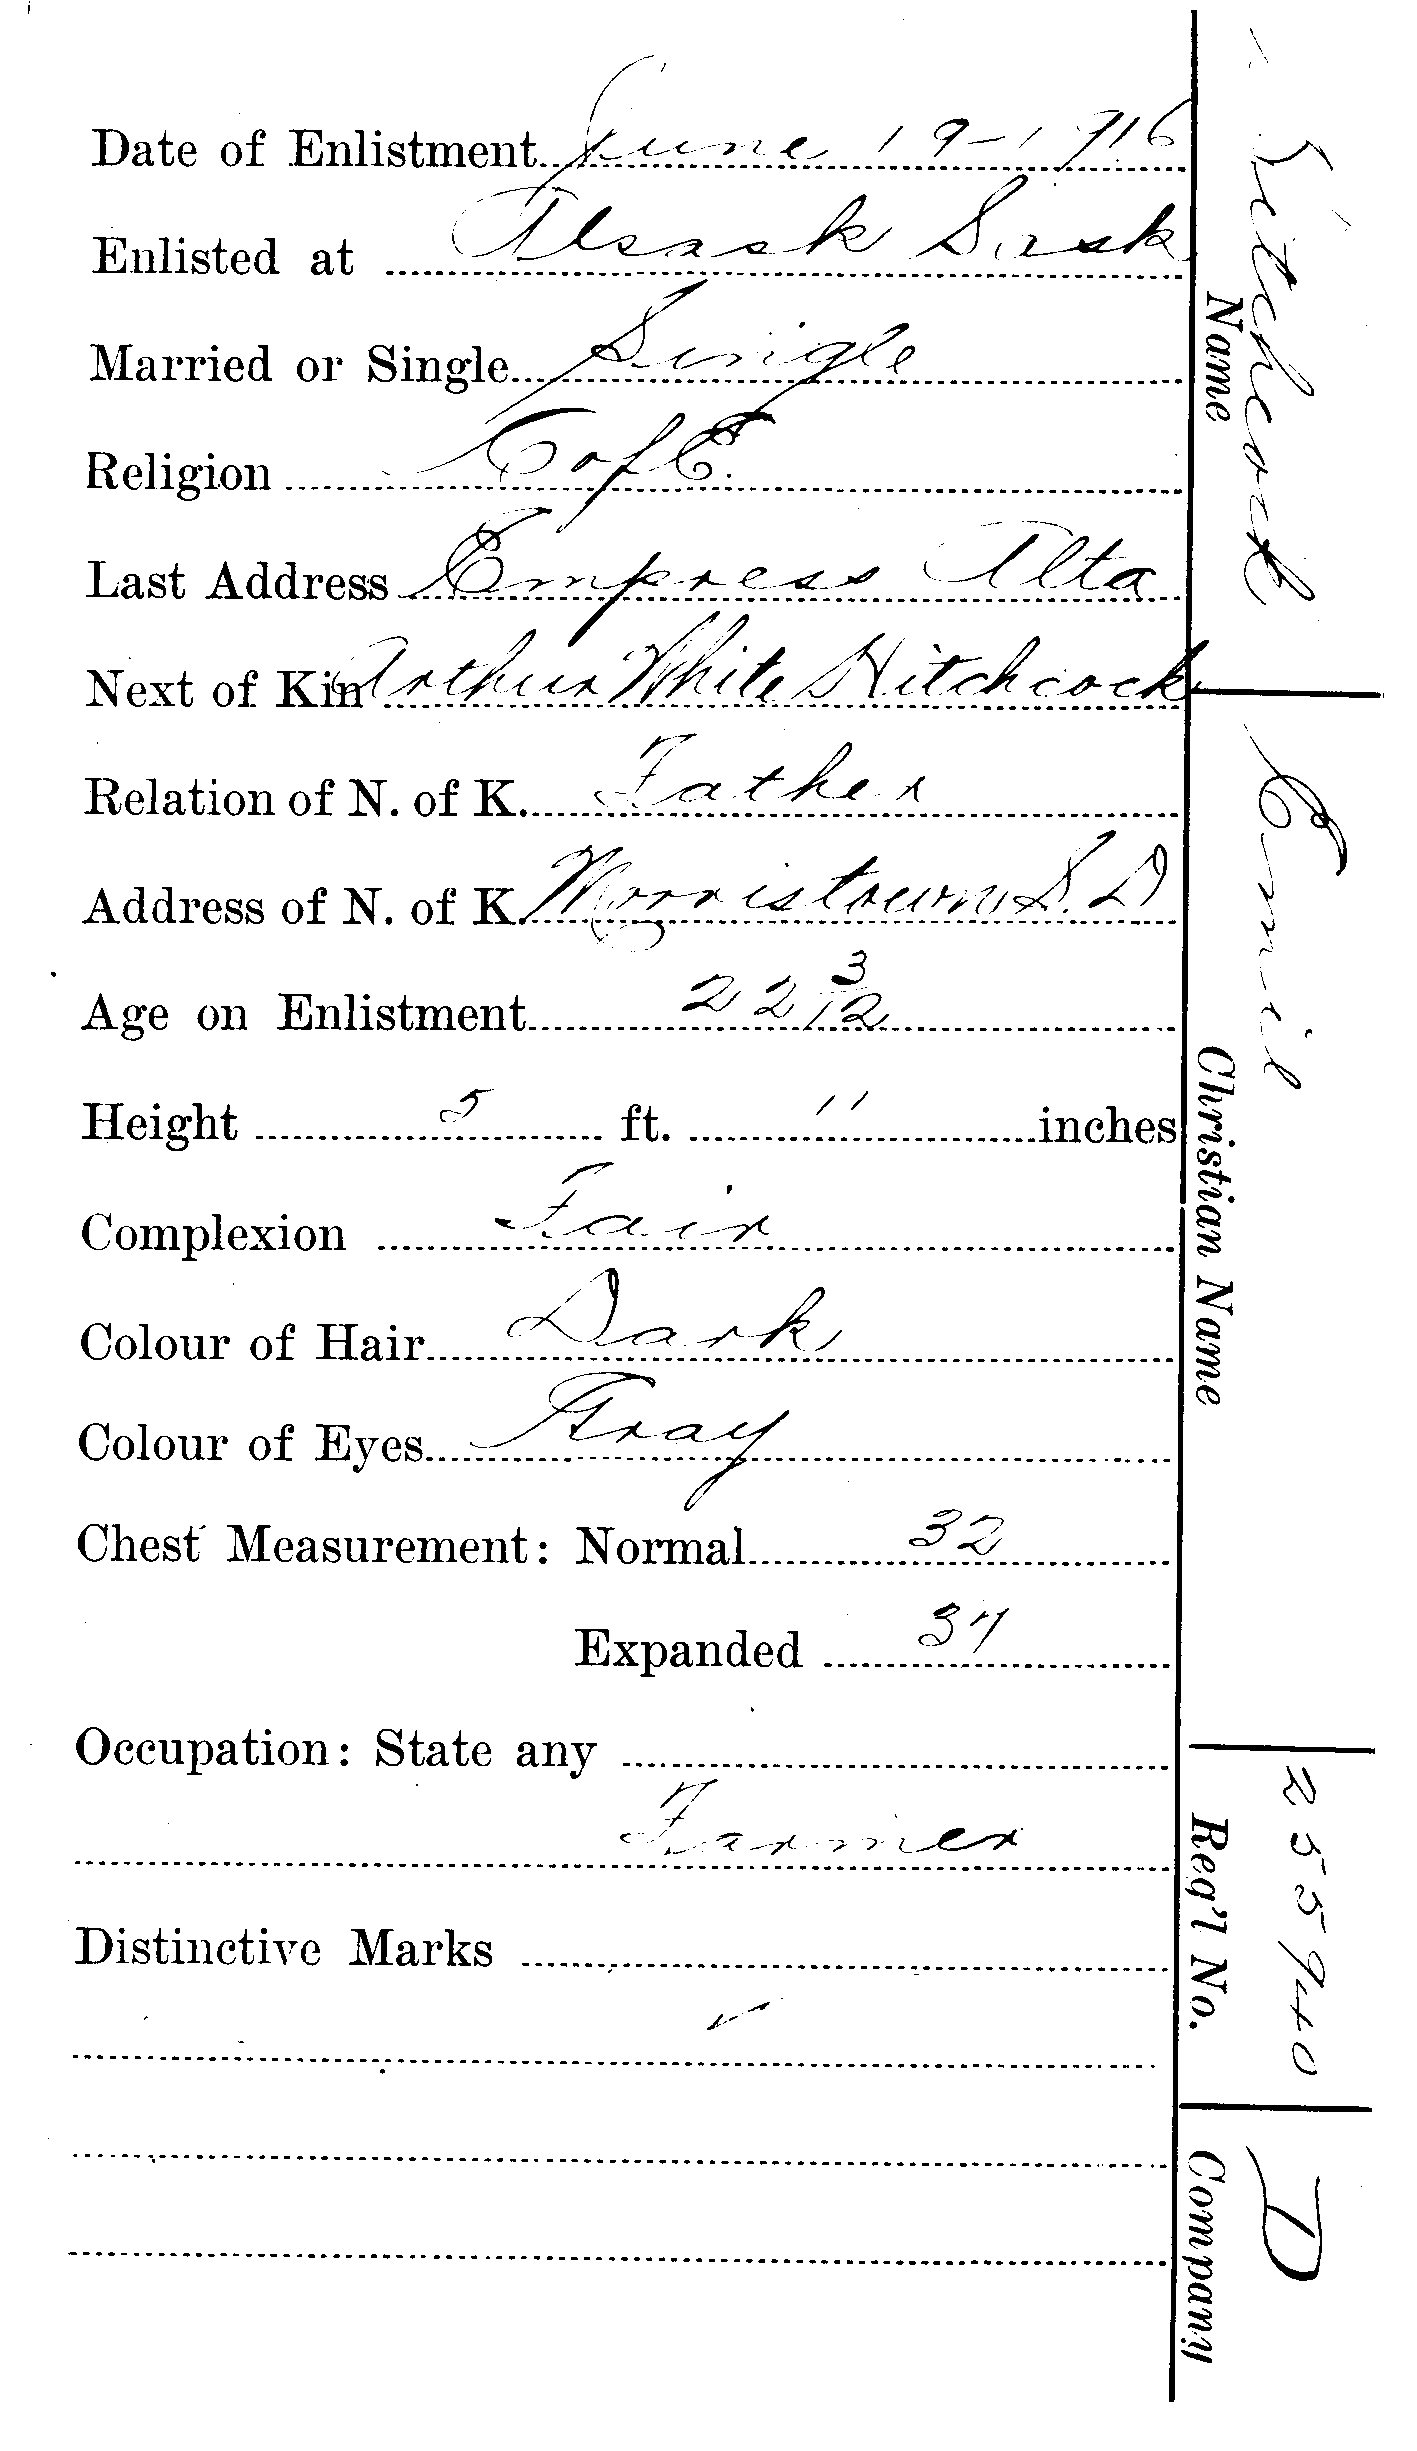 Date of Enlistment June 19-1916
Enlisted at Alsask Sask
Married or Single Single
Religion C of E.
Last Address Empress Alta
Next of Kin Arthur White Hitchcock
Relation of N. of K. Father
Address of N. of K. Morristown S. D
Age on Enlistment 22 3/12
Height 5 ft. 11 inches
Complexion Fair
Colour of Hair Dark
Colour of Eyes Gray
Chest Measurement: Normal 32
Expanded 37
Occupation: State any
Farmer
Distinctive Marks
Hitchcock
Name
Emil
Christian Name
255940
Reg'l No.
D
Company